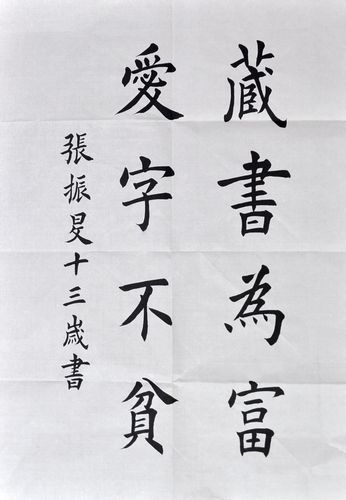 藏書為富
愛字不貧
張振旻十三歲書